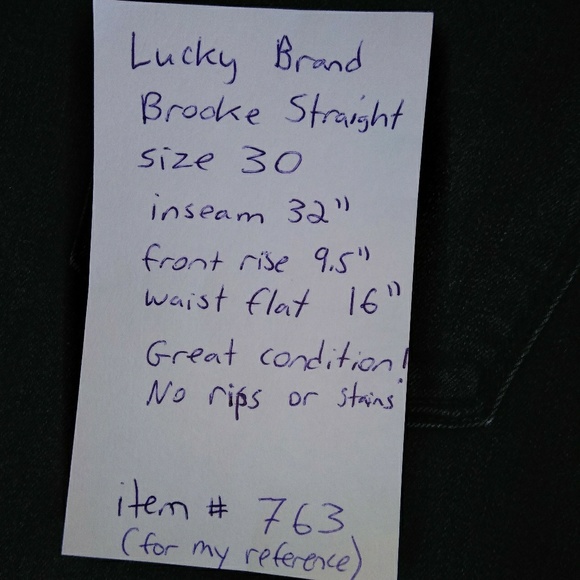 Lucky Brand
Brooke Straight
size 30
inseam 32"
front rise 9.5"
waist flat 16"
Great condition!
No rips or stains
item # 763
(for my reference)